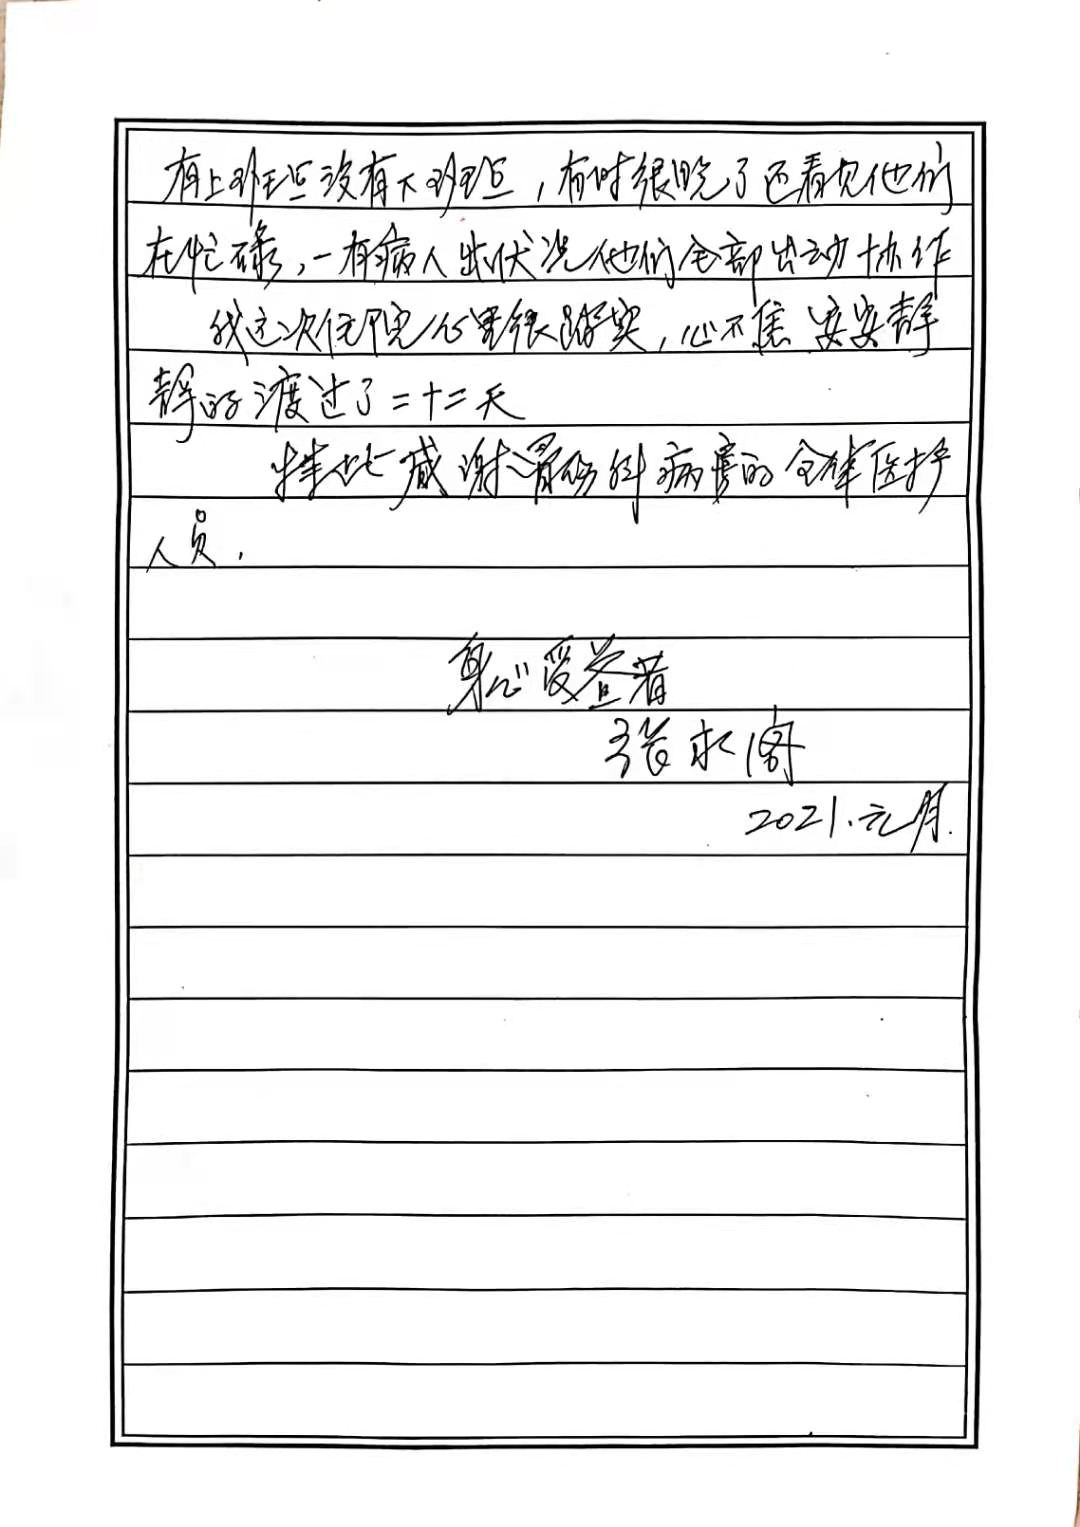 有上班点没有下班点，有时很晚了还看见他们
在忙碌，一有病人出状况他们全部出动协作
我这次住院心里很踏实，心不焦 安安静
静的渡过了二十二天
特此感谢骨伤科病房的全体医护
人员．
身心受益者
张水阁
2021.元月.